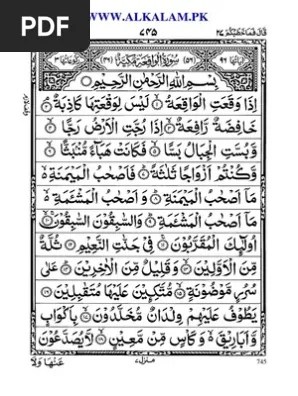 PDF
WWW.ALKALAM.PK
قَالَ فَمَا خَطْبُكُمْ ٢٧
٧٤٥
سُوْرَةُ الْوَاقِعَةِ مَكِّيَّةٌ
بِسْمِ اللّٰهِ الرَّحْمٰنِ الرَّحِيْمِ
اِذَا وَقَعَتِ الْوَاقِعَةُ ۙ لَيْسَ لِوَقْعَتِهَا كَاذِبَةٌ ۘ
خَافِضَةٌ رَّافِعَةٌ ۙ اِذَا رُجَّتِ الْاَرْضُ رَجًّا ۙ
وَّبُسَّتِ الْجِبَالُ بَسًّا ۙ فَكَانَتْ هَبَآءً مُّنْۢبَثًّا ۙ
وَّكُنْتُمْ اَزْوَاجًا ثَلٰثَةً ؕ فَاَصْحٰبُ الْمَيْمَنَةِ ۙ
مَاۤ اَصْحٰبُ الْمَيْمَنَةِ ؕ وَاَصْحٰبُ الْمَشْئَمَةِ ۙ
مَاۤ اَصْحٰبُ الْمَشْئَمَةِ ؕ وَالسّٰبِقُوْنَ السّٰبِقُوْنَ ۙ
اُولٰٓئِكَ الْمُقَرَّبُوْنَ ۚ فِيْ جَنّٰتِ النَّعِيْمِ ثُلَّةٌ
مِّنَ الْاَوَّلِيْنَ ۙ وَقَلِيْلٌ مِّنَ الْاٰخِرِيْنَ ؕ عَلٰى
سُرُرٍ مَّوْضُوْنَةٍ ۙ مُّتَّكِـِٕيْنَ عَلَيْهَا مُتَقٰبِلِيْنَ
يَطُوْفُ عَلَيْهِمْ وِلْدَانٌ مُّخَلَّدُوْنَ ۙ بِاَكْوَابٍ
وَّاَبَارِيْقَ ۙ وَكَاْسٍ مِّنْ مَّعِيْنٍ ۙ لَّا يُصَدَّعُوْنَ
عَنْهَا وَلَا
منزل ٧
745